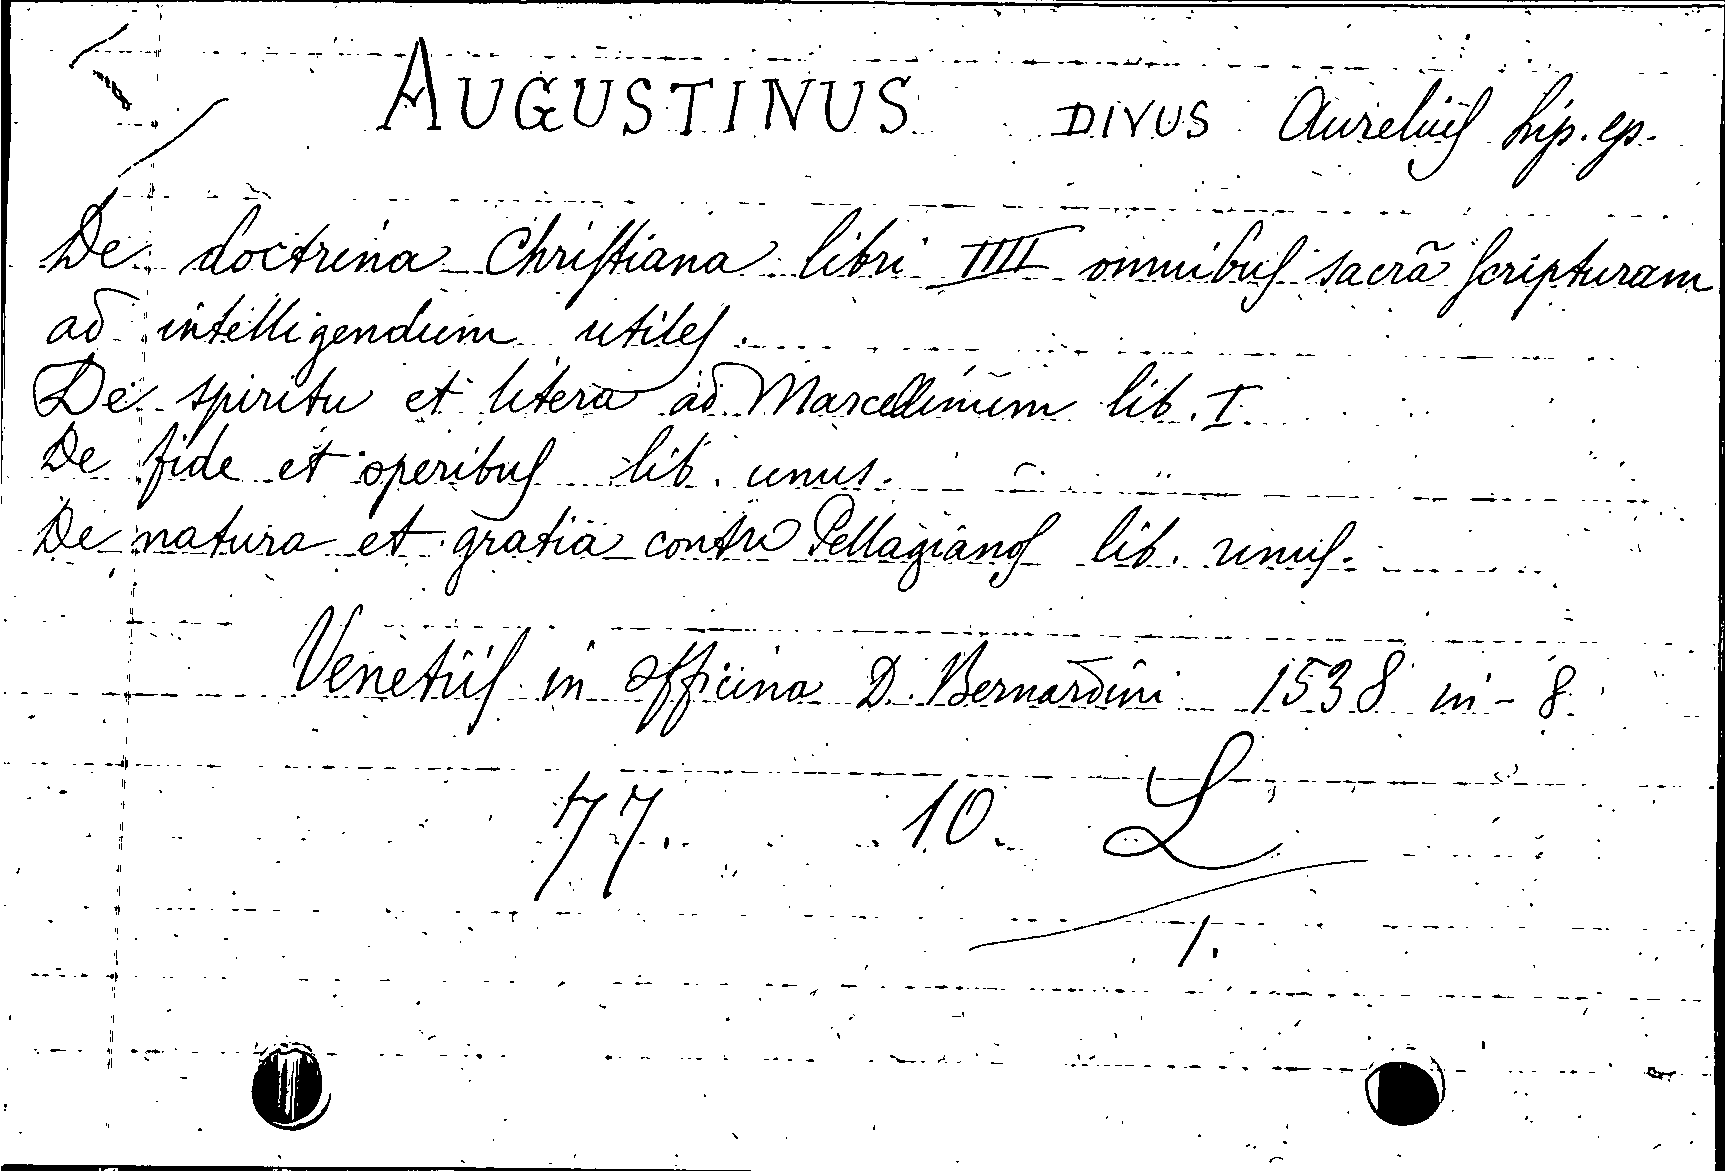 AUGUSTINUS DIVUS Aurelius hip. ep.
De doctrina Christiana libri IIII omnibus sacrã scripturam
ad intelligendum utiles
De spiritu et litera ad Marcellinum lib. I.
De fide et operibus lib. unus.
De natura et gratia contra Pellagianos lib. unus.
Venetiis in officina D. Bernardini 1538 in-8
77. 10. L
1.